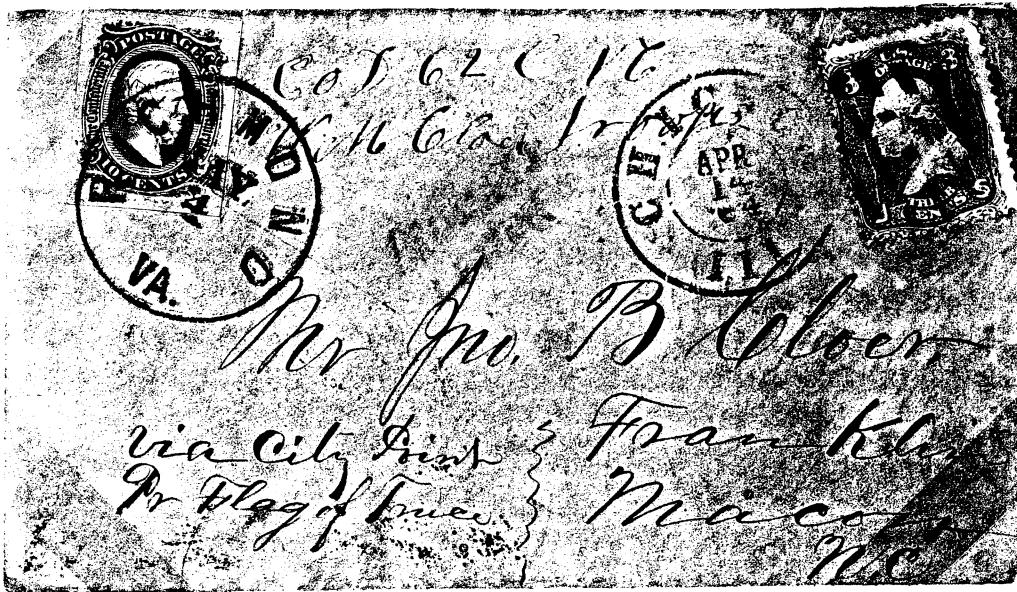 POSTAGE
TEN CENTS
RICHMOND
VA.
Co I 62 N C
W. M. Cloer
CHICAGO
APR
14
64
ILL
3 POSTAGE 3
U S
THREE CENTS
Mr Jno. B. Cloer,
Franklin
Macon
N.C
via City Point
Pr Flag of Truce.